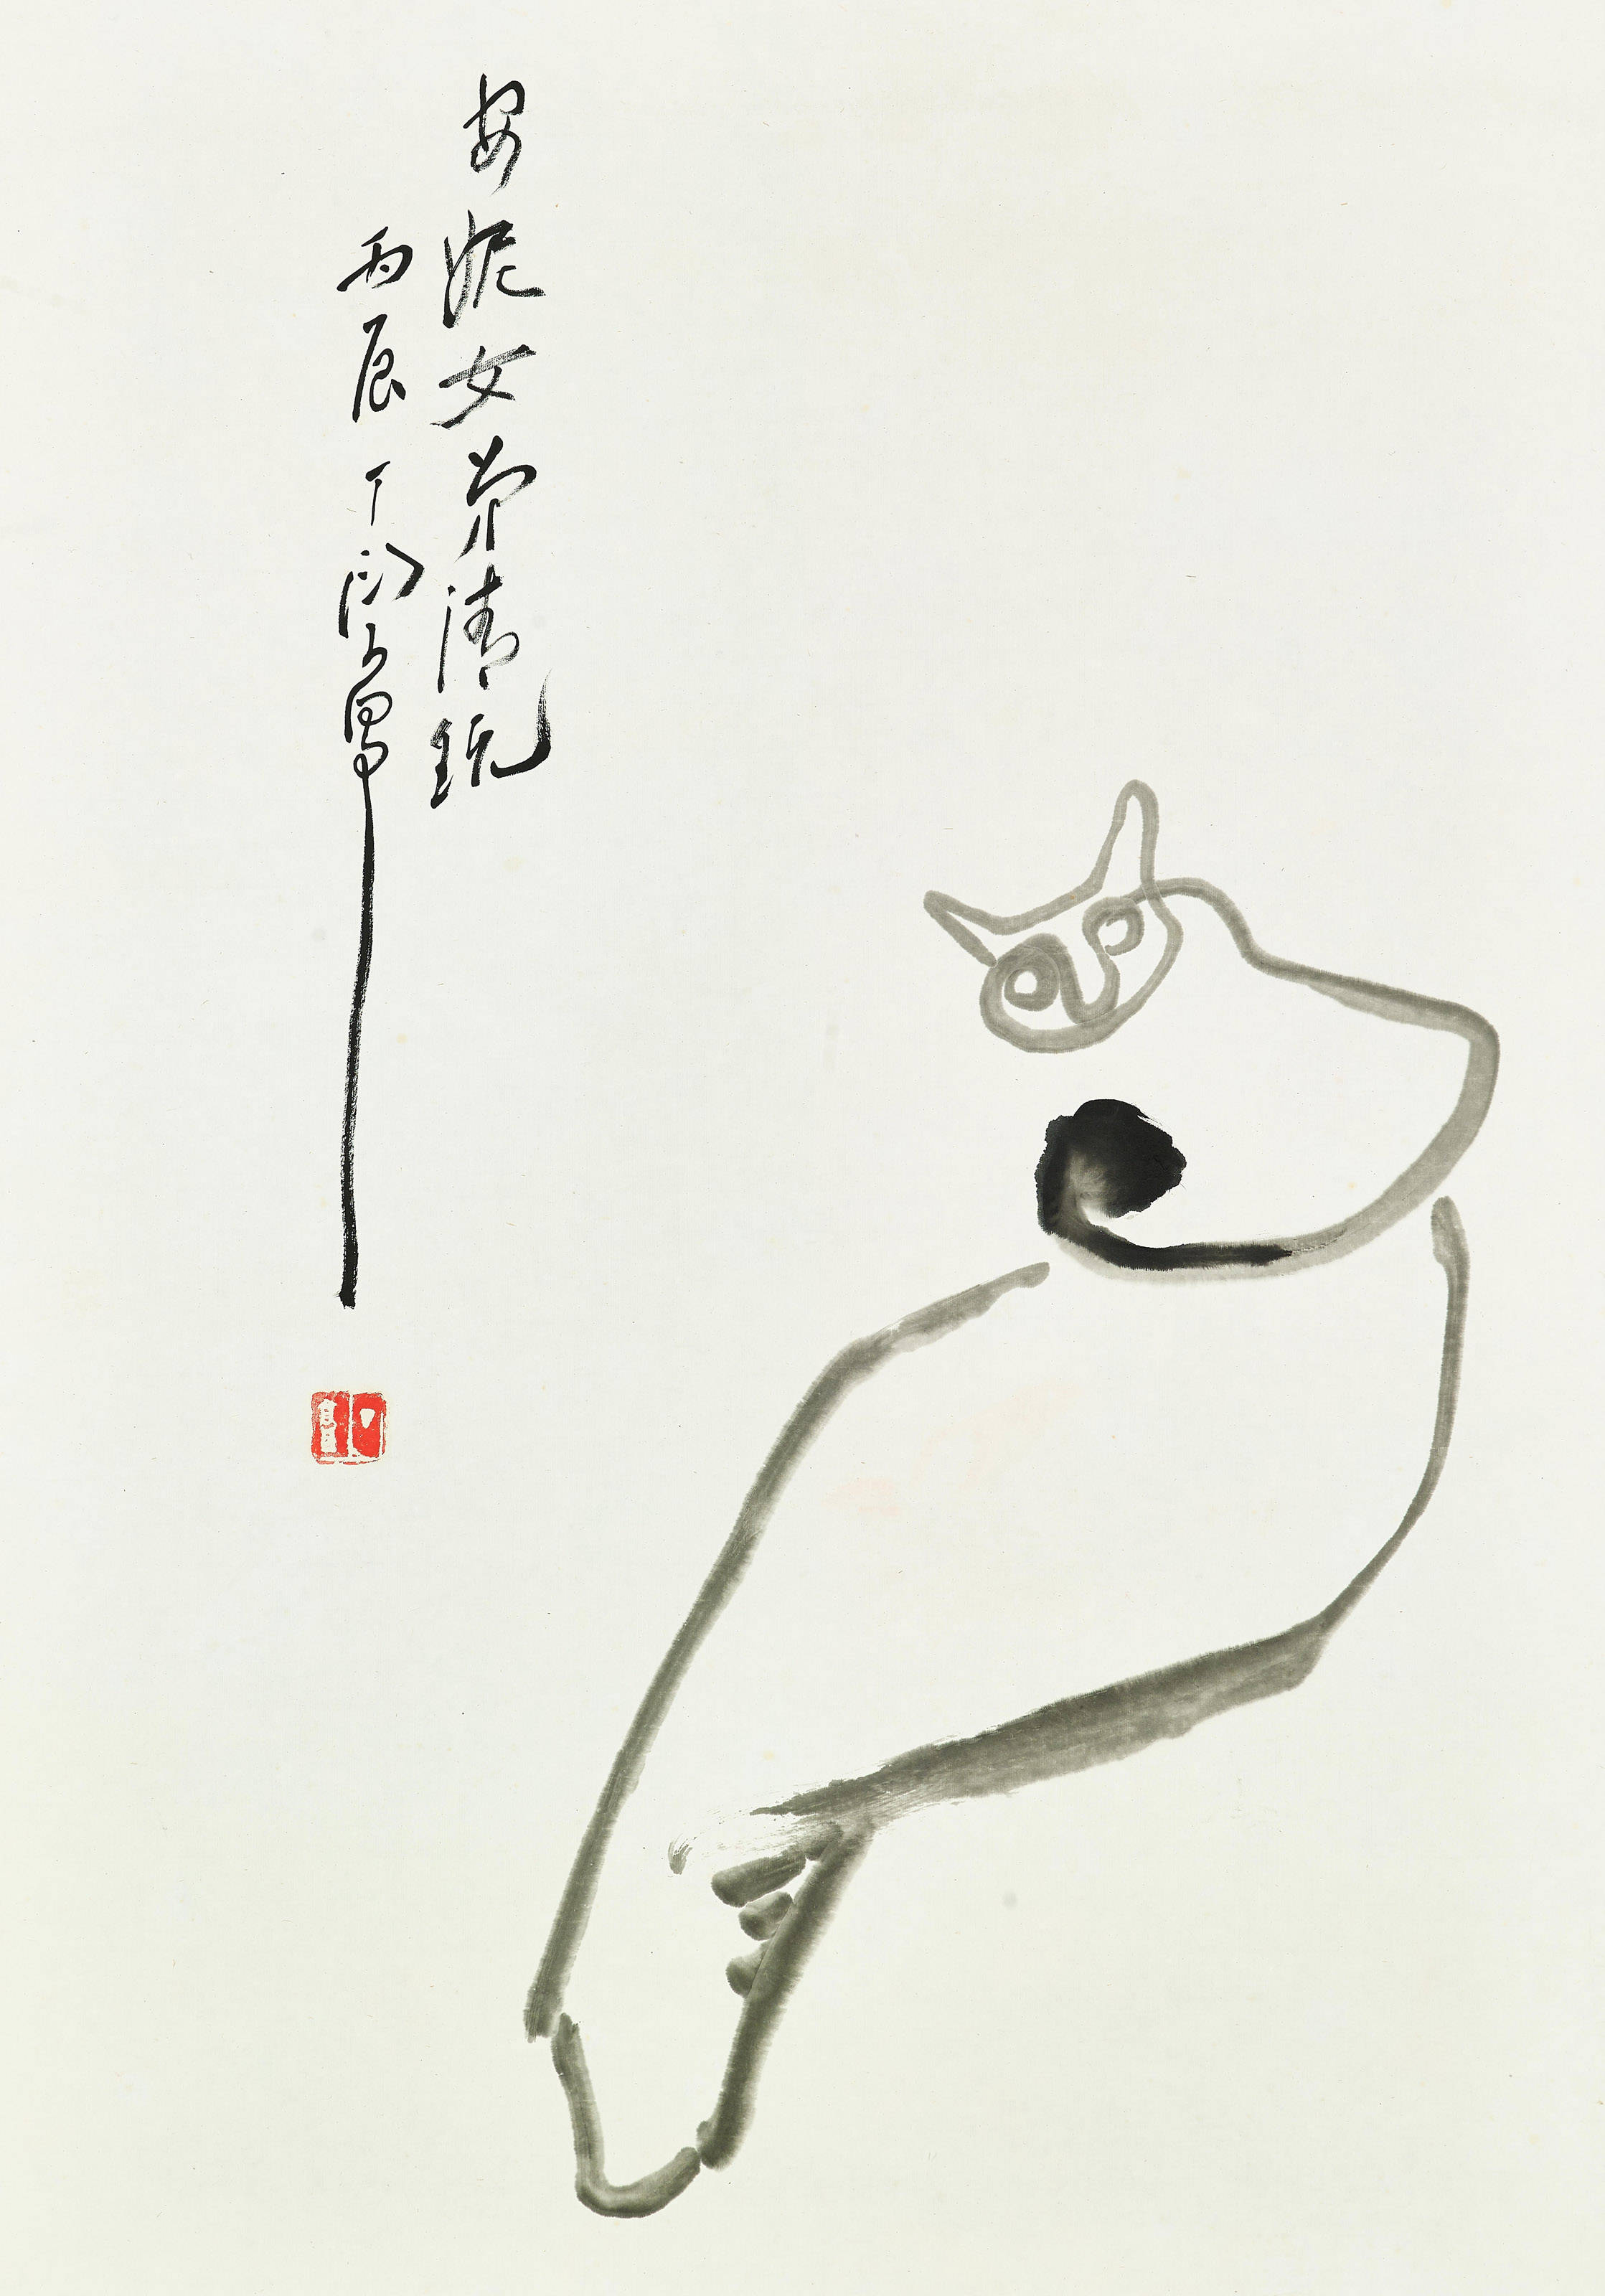 安妮女弟清玩
丙辰丁衍庸